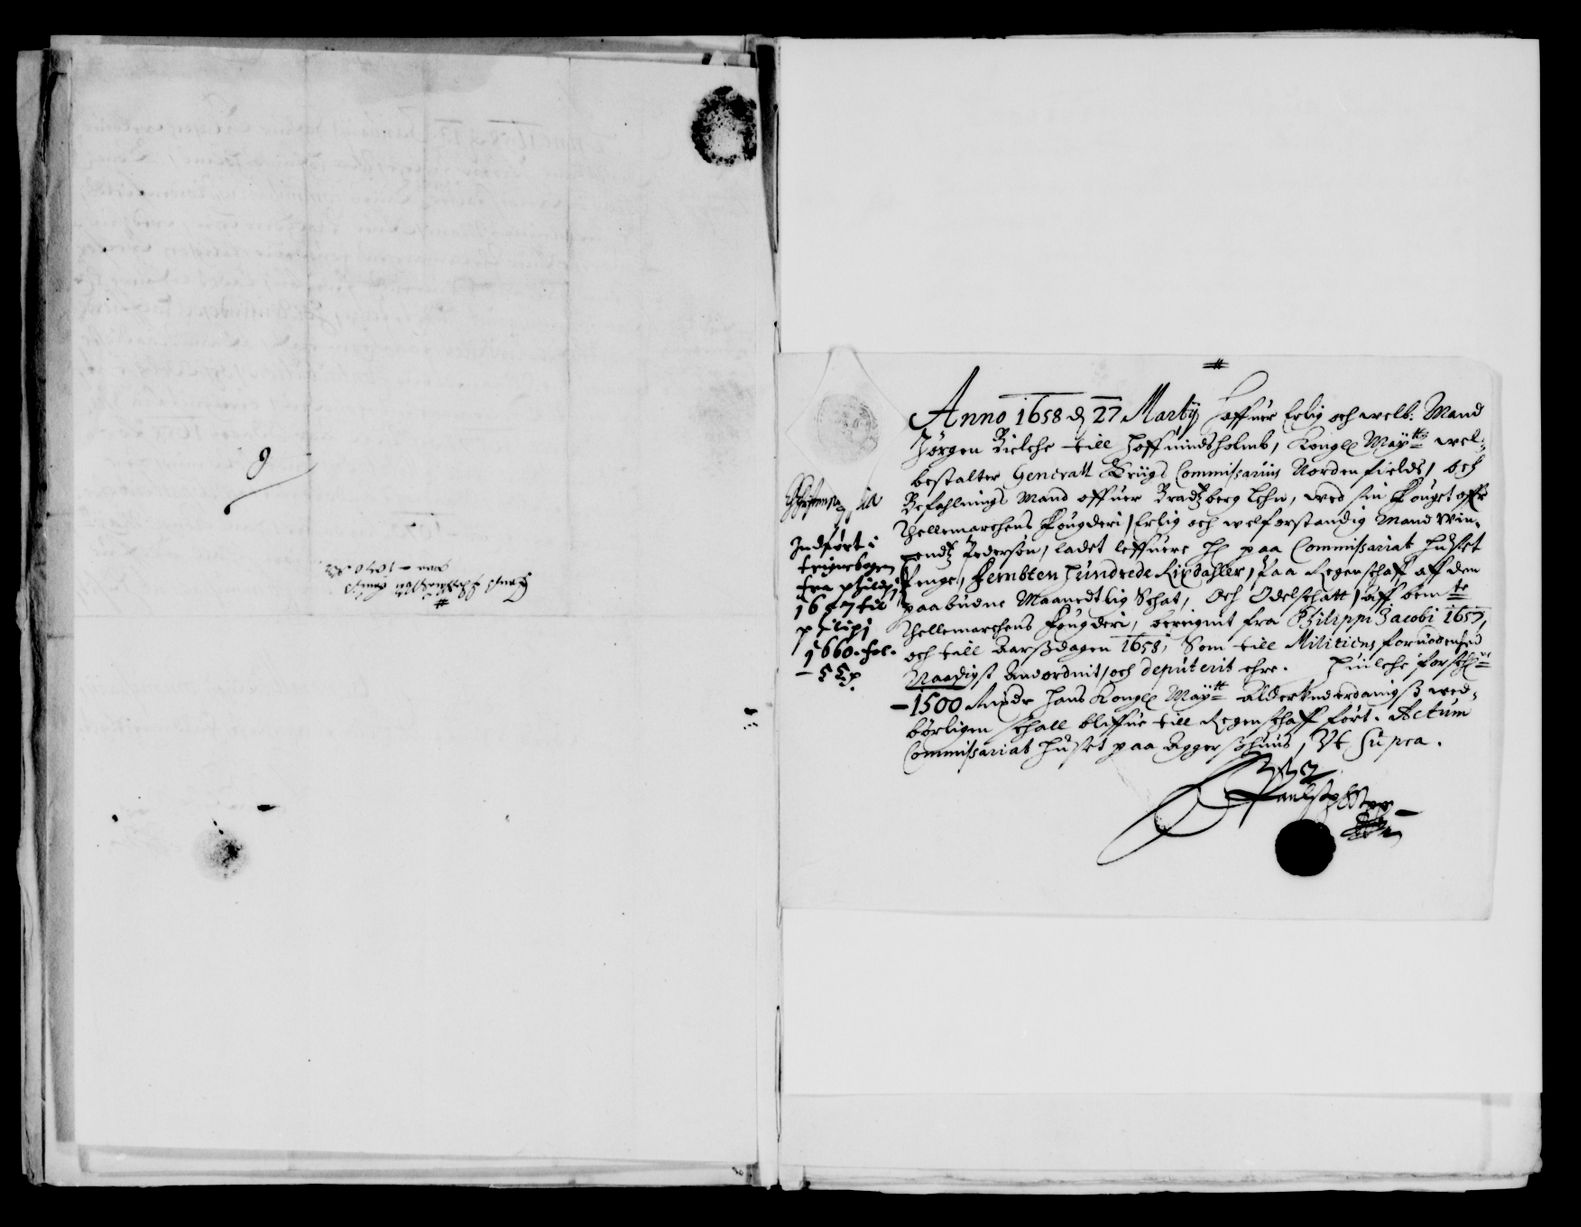 Anno 1658 d 27 Martij Haffuer Erlig och welb: Mand
Jørgen Bielche till Hoffuindsholmb, Kongl Maytts wel-
bestalter General Kriigs Commissarius Nordenfields, och
Befahlnings Mand offuer Bradtzberg Lehn, wed sin Fouget offr
Thellemarchens Fougderi, Erlig och welforstandig Mand Win-
Pedersøn, ladet leffuere H paa Commissariat Huset
Penge, Fembten Hundrede Rixdahler, Paa Regenschaff aff den
paabudne Maanedtlig Schat, Och Odelschatt, Aff bemte
Thellemarchens Fougderi, bereignit fra Philippi Jacobi 1657,
och till Aarsdagen 1658, Som till Militiens fornødenhed
Naadigst Anordnit, och deputerit ehre. Huilche forschr
1500 Rixdr Hans Kongl Maytt Alderunderdanigst wed-
børligen schall bliffue till Regenschaff ført. Actum
Commissariat Huset paa Aggershuus, Ut Supra.
Indført i
fra
1657 til
philipi
1660. fol.
1040